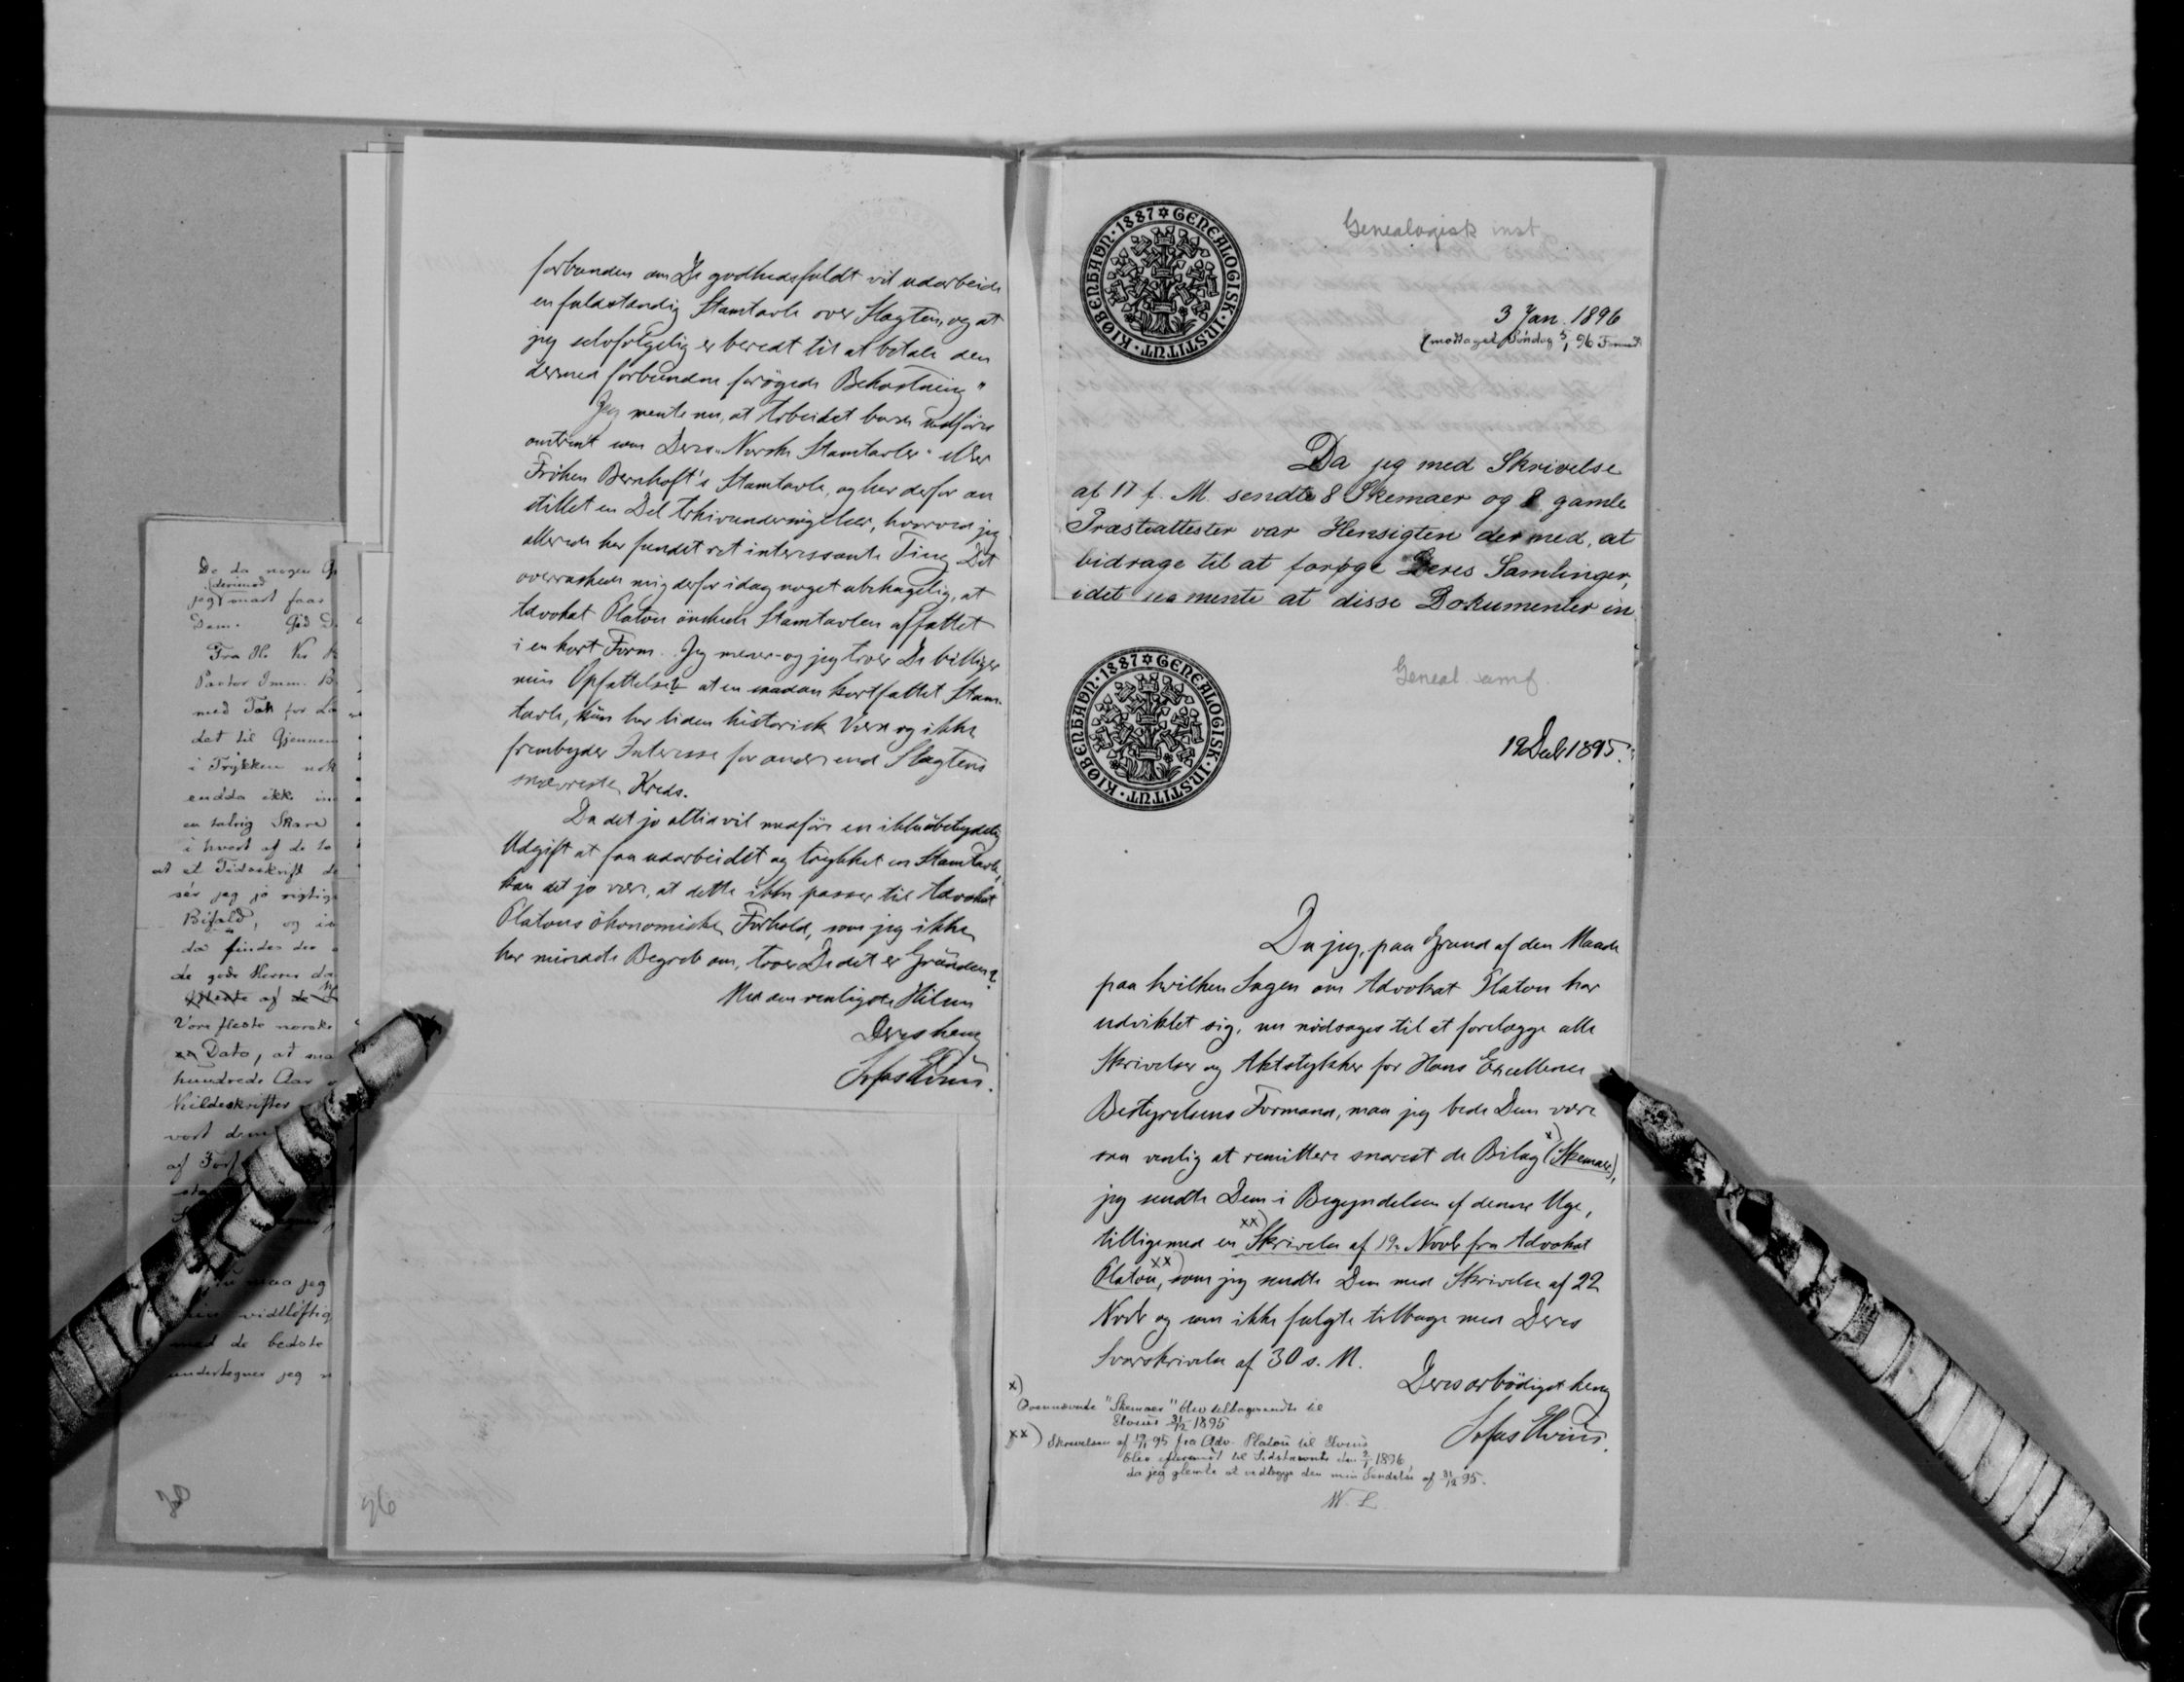 De da nogen
derimod
jeg snart faar
Dem. Gid
Fra Hr.
Pastor Imm. B
med Tak for
det til Gjennem
i Trykken nok
endda ikke
en talrig Skare
i hvert af de to
at et Tidsskrift de
sér jeg jo rigtig
Bifald, og
da findes der
de gode Herrer da
af
Vore fleste norske
Dato, at ma
hundrede Aar
Kildeskrifter
vort dem
af
maa jeg
vidtløftig
med de bedste
undertegner jeg
forbunden om De godhedsfuldt vil udarbeide
en fuldstændig Stamtavle over Slægten, og at
jeg selvfølgelig er beredt til at betale den
dermed forbundne forøgede Bekostning"
Jeg mente nu, at Arbeidet burde udføres
omtrent som Deres "Norske Stamtavler" eller
Frøken Bernhoft's Stamtavle, og har derfor an
stillet en Del Arkivundersøgelser, hvorved jeg
allerede har fundet ret interessante Ting. Det
overraskede mig derfor idag noget ubehagelig, at
Advokat Platou ønskede Stamtavlen affattet
i en kort Form. Jeg mener – og jeg troer De billiger
min Opfattelse? at en saadan kortfattet Stam-
tavle, kun har liden historisk Værd og ikke
frembyder Interesse for andre end Slægtens
snævreste Kreds.
Da det jo altid vil medføre en ikke ubetydelig
Udgift at faa udarbeidet og trykket en Stamtavle,
kan det jo være, at dette ikke passer til Advokat
Platous økonomiske Forhold, som jeg ikke
har mindste Begreb om, troer De det er Grunden?
Med den venligste Hilsen
Deres heng
Sofus Elvius.
96
KIØBENHAVN · 1887 ✡ GENEALOGISK · INSTITUT ·
Genealogisk inst.
3 Jan. 1896
(modtaget Søndag 5/1 96 Formd.
Da jeg med Skrivelse
af 17 f. M. sendte 8 Skemaer og 8 gamle
Præsteattester var Hensigten dermed, at
bidrage til at forøge Deres Samlinger,
idet jeg mente at disse Dokumenter in
KIØBENHAVN · 1887 ✡ GENEALOGISK · INSTITUT ·
Geneal. samf.
19 Decb 1895.
Da jeg, paa Grund af den Maade
paa hvilken Sagen om Advokat Platou har
udviklet sig, nu nødsages til at forelægge alle
Skrivelser og Aktstykker for Hans Excellence
Bestyrelsens Formand, maa jeg bede Dem være
saa venlig at remittere snarest de Bilag x) (Skemaer),
jeg sendte Dem i Begyndelsen af denne Uge,
tilligemed en xx) Skrivelse af 19. Novb fra Advokat
Platou, xx) som jeg sendte Dem med Skrivelse af 22
Novb og som ikke fulgte tilbage med Deres
Svarskrivelse af 30 s. M.
Deres ærbødigst heng
Sofus Elvius.
x)
Ovennævnte "Skemaer" blev tilbagesendte til
Elvius 31/12 1895
xx) Skrivelsen af 19/11 95 fra Adv. Platou til Elvius
blev eftersendt til Sidstnævnte den 2/1 1896
da jeg glemte at vedlægge den min Sendelse af 31/12 95.
W. L.